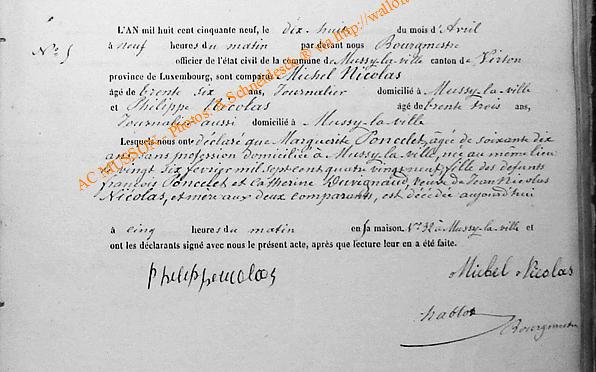 L'AN mil huit cent cinquante neuf, le dix huit du mois d'Avril
N° 5 à neuf heures du matin par devant nous Bourgmestre
officier de l'état civil de la commune de Mussy-la-ville canton de Virton
province de Luxembourg, sont comparus Michel Nicolas
âgé de trente six ans, Journalier domicilié à Mussy-la-ville
et Philippe Nicolas âgé de trente trois ans,
Journalier aussi domicilié à Mussy-la-ville
Lesquels nous ont déclaré que Marguerite Poncelet, âgée de soixante dix
ans sans profession domiciliée à Mussy-la-ville, née au même lieu
vingt six février mil sept cent quatre vingt neuf, fille des défunts
françois Poncelet et Catherine Duvignaud, veuve de Jean Nicolas
Nicolas, et mere aux deux comparants, est décédée aujourd'hui
à cinq heures du matin en sa maison N° 32 à Mussy-la-ville et
ont les déclarants signé avec nous le présent acte, après que lecture leur en a été faite.
philippe nicolas
Michel Nicolas
Bourgmestre
AC MUSSON - Photos: Schneidesch © via http://wallo